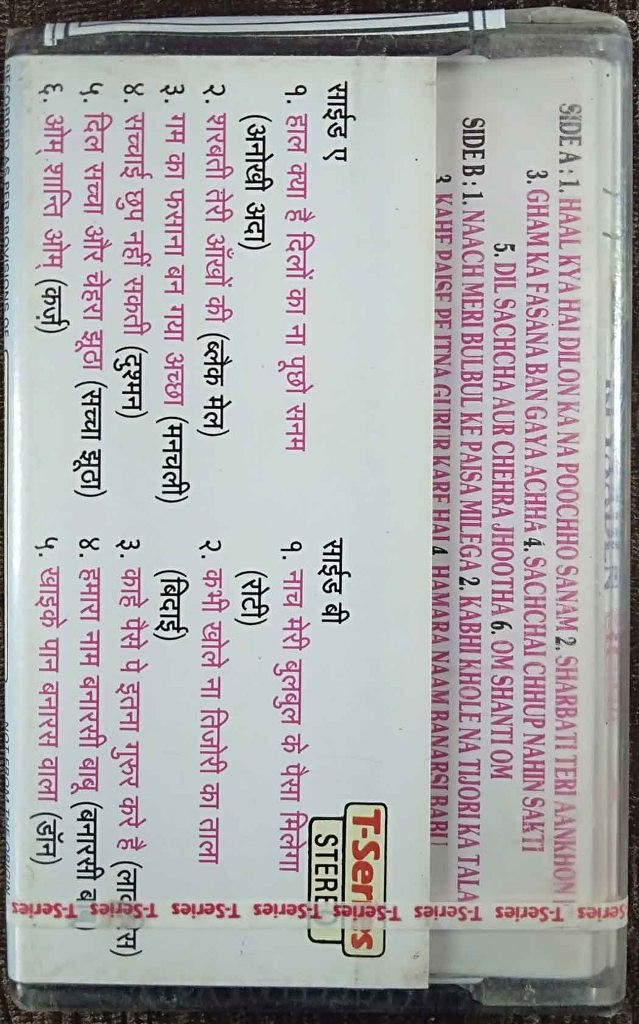 SIDE A : 1. HAAL KYA HAI DILON KA NA POOCHHO SANAM 2. SHARBATI TERI AANKHON
3. GHAM KA FASANA BAN GAYA ACHHA 4. SACHCHAI CHHUP NAHIN SAKTI
5. DIL SACHCHA AUR CHEHRA JHOOTHA 6. OM SHANTI OM
SIDE B : 1. NAACH MERI BULBUL KE PAISA MILEGA 2. KABHI KHOLE NA TIJORI KA TALA
3. KAHE PAISE PE ITNA GURUR KARE HAI 4. HAMARA NAAM BANARSI BABU
साईड ए
१. हाल क्या है दिलों का ना पूछो सनम
(अनोखी अदा)
२. शरबती तेरी आँखों की (ब्लैक मेल)
३. गम का फसाना बन गया अच्छा (मनचली)
४. सच्चाई छुप नहीं सकती (दुश्मन)
५. दिल सच्चा और चेहरा झूठा (सच्चा झूठा)
६. ओम् शान्ति ओम् (कर्ज़)
साईड बी
१. नाच मेरी बुलबुल के पैसा मिलेगा
(रोटी)
२. कभी खोले ना तिजोरी का ताला
(बिदाई)
३. काहे पैसे पे इतना गुरुर करे है
४. हमारा नाम बनारसी बाबू (बनारसी
५. खाइके पान बनारस वाला (डॉन)
T-Series
STEREO
T-Series T-Series T-Series T-Series T-Series T-Series T-Series Series